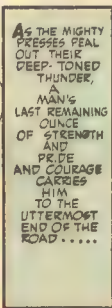 AS THE MIGHTY
PRESSES PEAL
OUT THEIR
DEEP-TONED
THUNDER,
A
MAN'S
LAST REMAINING
OUNCE
OF STRENGTH
AND
PRIDE
AND COURAGE
CARRIES
HIM
TO THE
UTTERMOST
END OF THE
ROAD.....